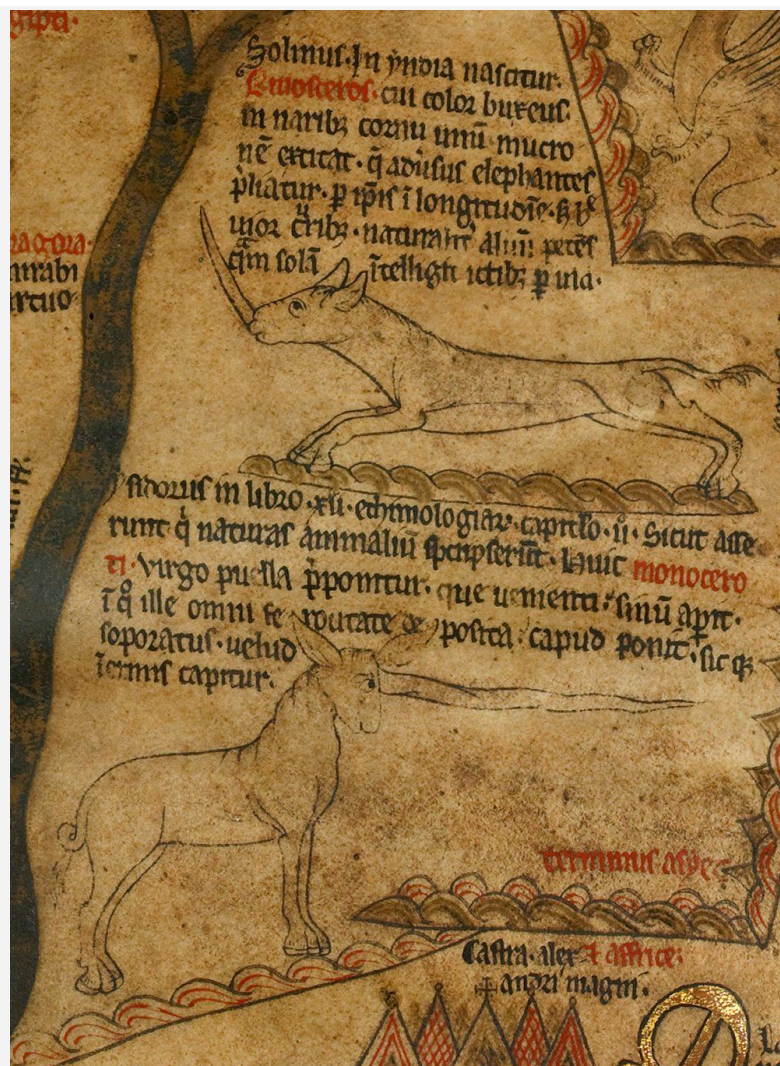 gipti.
Solinus. In yndia nascitur.
Rinosceros. cui color buxeus.
in narib; cornu unū mucro
nē excitat. q̄ adūsus elephantes
p̄liatur. ꝑ ip̄is ī longitudīe.
uior c̄rib;. naturalit̄ aluū petēs
q̄m solā ītelligit ictib; ꝑuia.
ragora.
mirabi
rtuo
sidorus in libro .xii. ethimologiar. capitlo. ii. Sicut asse
runt q̄ naturas animaliū sc̄ripserūt. Huic monocero
ti. virgo puella p̄ponitur. que uenienti sinū apit.
ī q̄ ille omni fe rocitate de posita. capud ponit. sic q;
soporatus. uelud
īermis capitur.
terminus asye
Castra. alex t affrice.
andri magni.